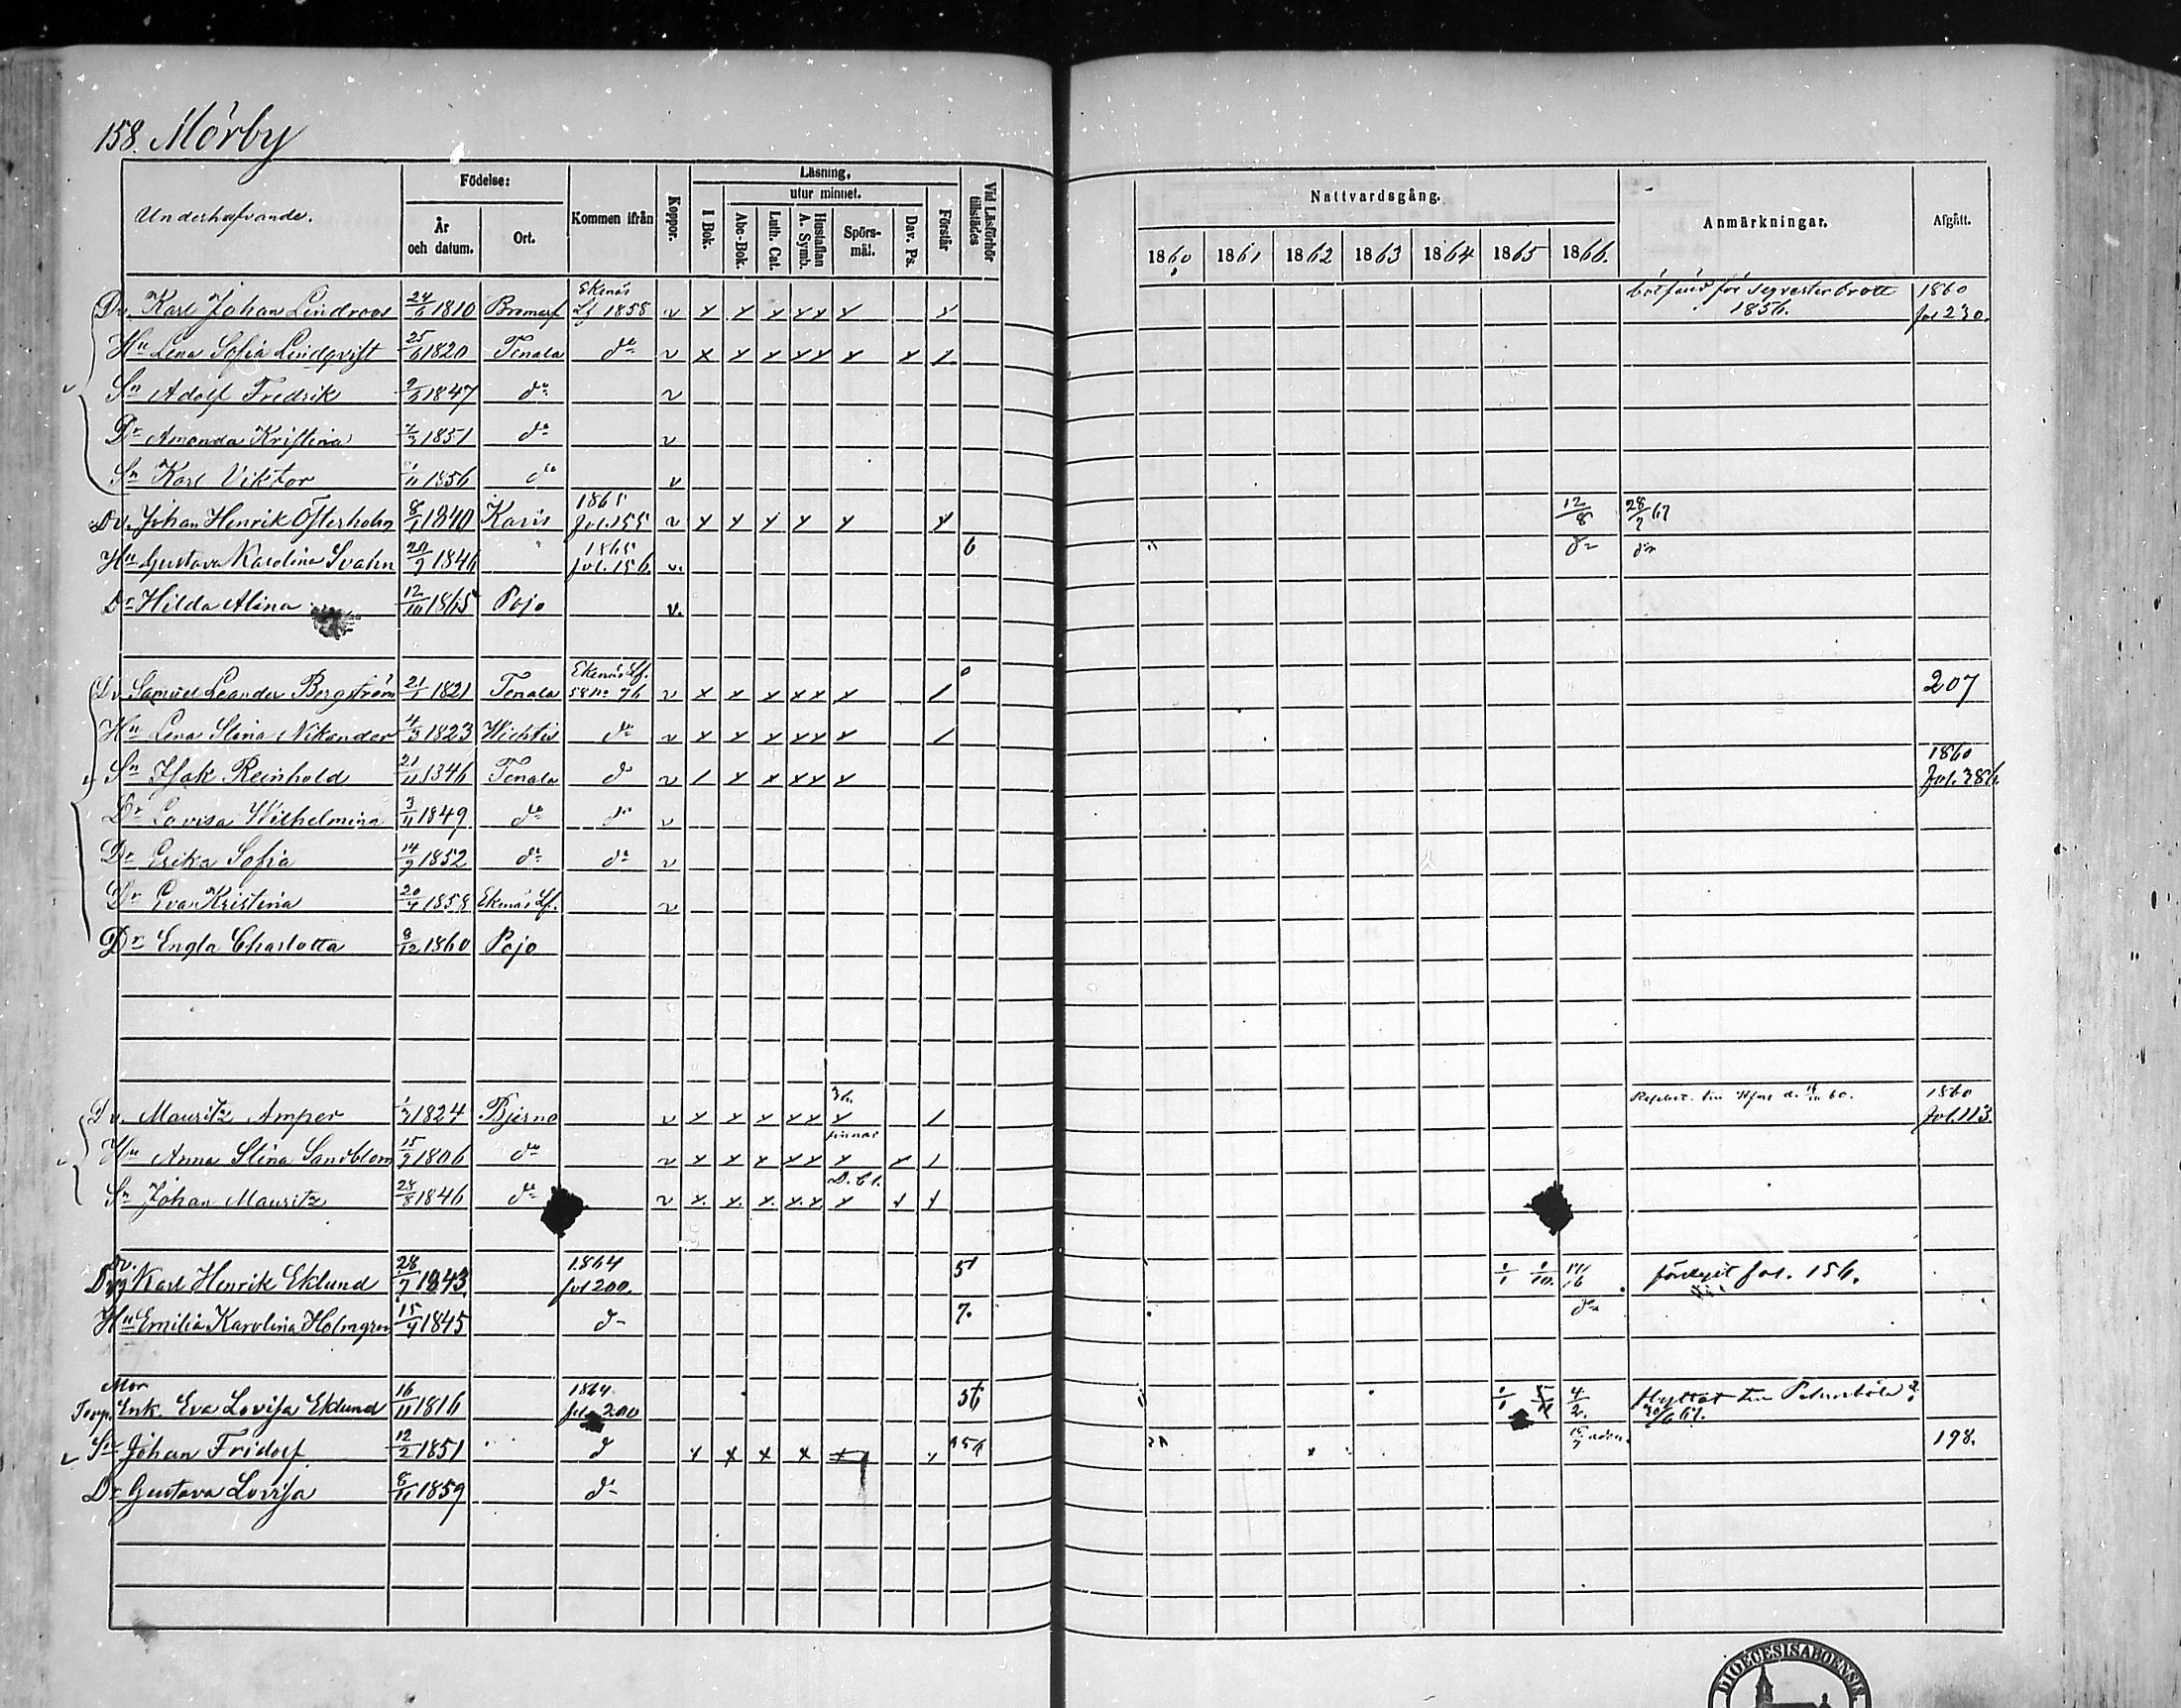 158. Mörby
Underhafvande. Födelse: År och datum. Ort. Kommen ifrån Koppor. Läsning, I Bok. utur minnet. Abc-Bok. Luth. Cat. Hustaflan A. Symb. Spörs-mål. Dav. Ps. Förstår Vid Läsförhör tillstädes Nattvardsgång. 1860 1861 1862 1863 1864 1865 1866. Anmärkningar. Afgått.
Dr. Karl Johan Lindroos 1810 Bromarf Ekenäs Lf 1858 v x x x x x x x 1856. 1860 fol 230.
Hu Lena Sofia Lindqvist 25/6 1820 Tenala do v x x x x x x x /
Sn Adolf Fredrik 1847 do v
Dr Amanda Kristina 1851 do v
Sn Karl Viktor 1/11 1856 do v
Dr. Johan Henrik Österholm 8/1 1840 Karis 1865 fol. 155 v x x x x x x 12/8 28/7 67
Hu Gustava Karolina Svahn 20/9 1846 1865 fol. 156. v. 6 do do
Dr Hilda Alina 12/10 1865 Pojo v.
Dr Samuel Leander Bergström 21/1 1821 Tenala Ekenäs Lf. 58 No 76 v x x x x x x / 0 207
Hu Lena Stina Nikander 4/3 1823 Wichtis do v x x x x x x /
Sn Isak Reinhold 21/11 1846 Tenala do v / x x x x x 1860 Fol. 386.
Dr Lovisa Wilhelmina 3/11 1849 do do v
Dr Erika Sofia 14/9 1852 do do v
Dr Eva Kristina 20/4 1858 Ekenäs Lf. v
Dr Engla Charlotta 8/12 1860 Pojo
Dr. Mauritz Amper 1/7 1824 Bjerno v x x x x x x / 60. 1860 Fol. 113.
Hu Anna Stina Sandblom 15/9 1806 do v x x x x x finnar x x /
Sn Johan Mauritz 28/8 1846 do v x. x. x. x. x. x x x
Dr. Karl Henrik Eklund 28/7 1843. 1864 fol 200. 5 1/1 1/10. 17/6 fol. 156.
Hu Emilia Karolina Holmgren 15/4 1845 do 7. do
Mor Enk. Eva Lovisa Eklund 16/11 1816 1864 fol 200 56 4/2. flyttat till
Sn Johan Fridolf 12/2 1851 do x x x x x x 198.
Dr Gustava Lovisa 8/11 1859 do
DIOECESIS ABOENSIS